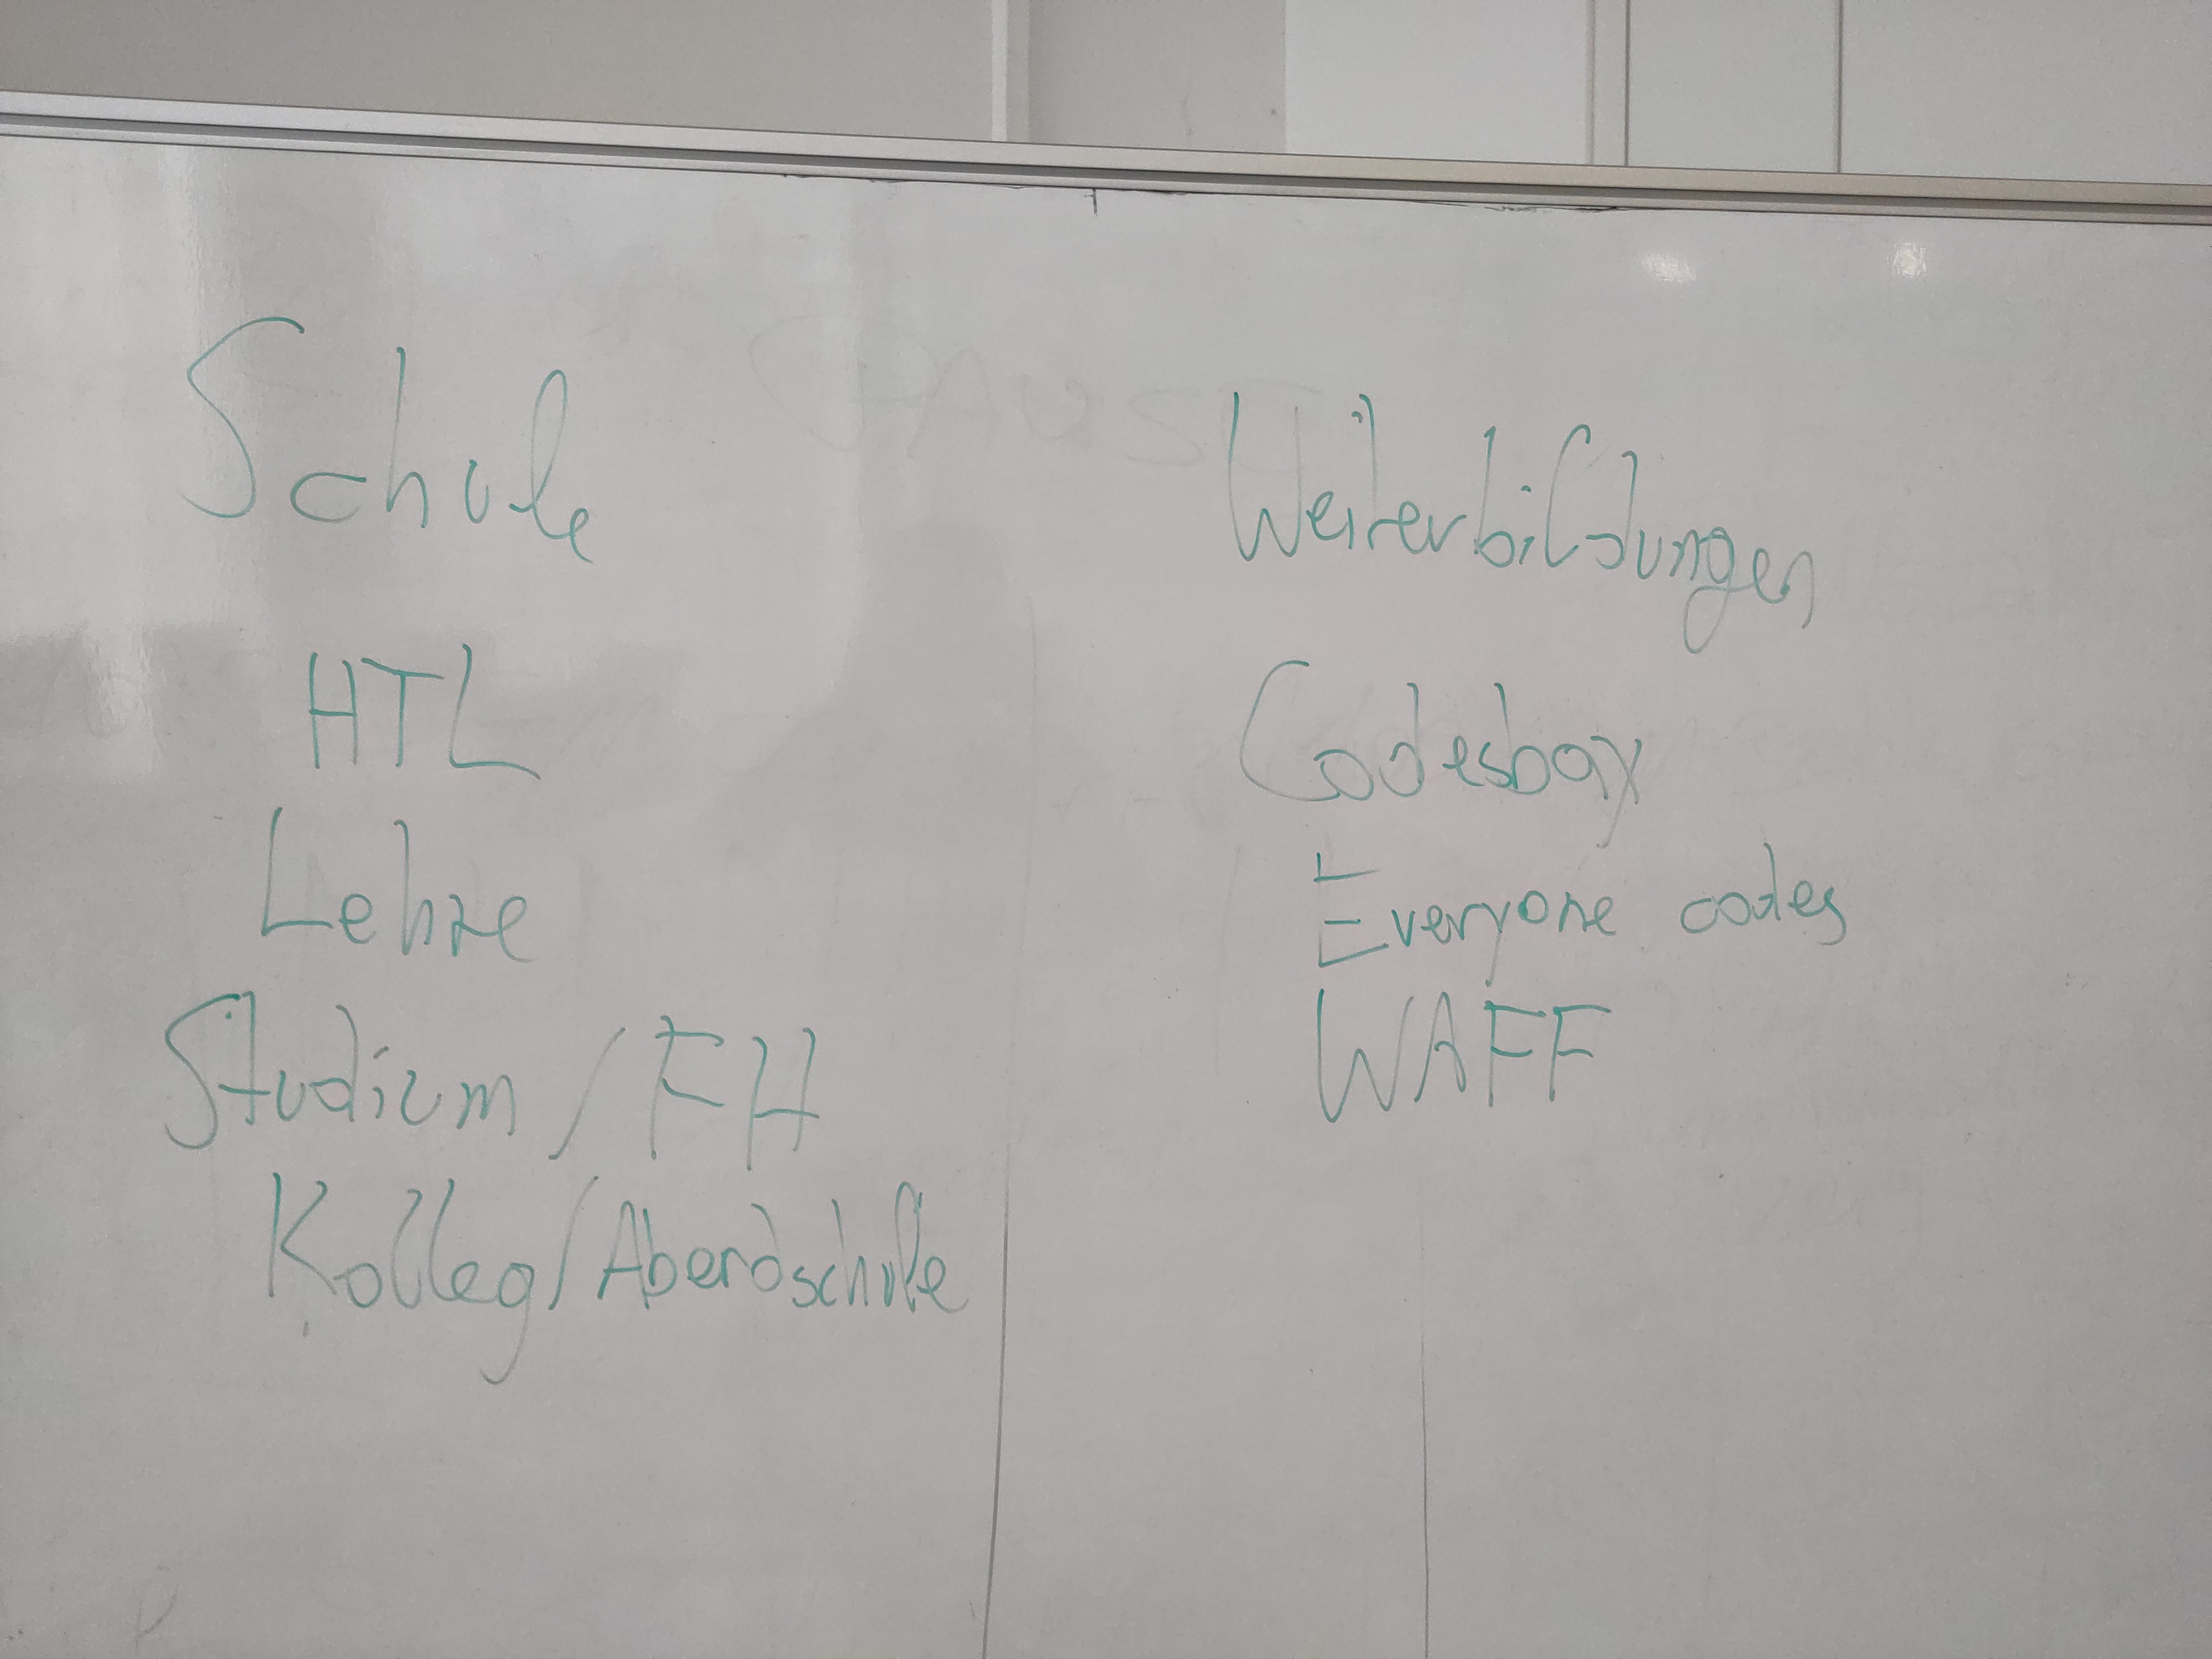 Schule
HTL
Lehre
Studium / FH
Kolleg / Abendschule
Weiterbildungen
Codesbay
Everyone codes
WAFF